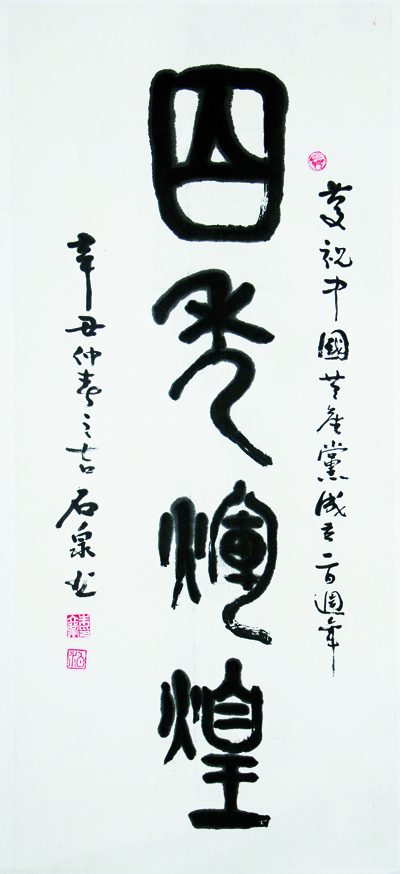 慶祝中國共產黨成立一百週年
百年煇煌
辛丑仲春之吉石泉书